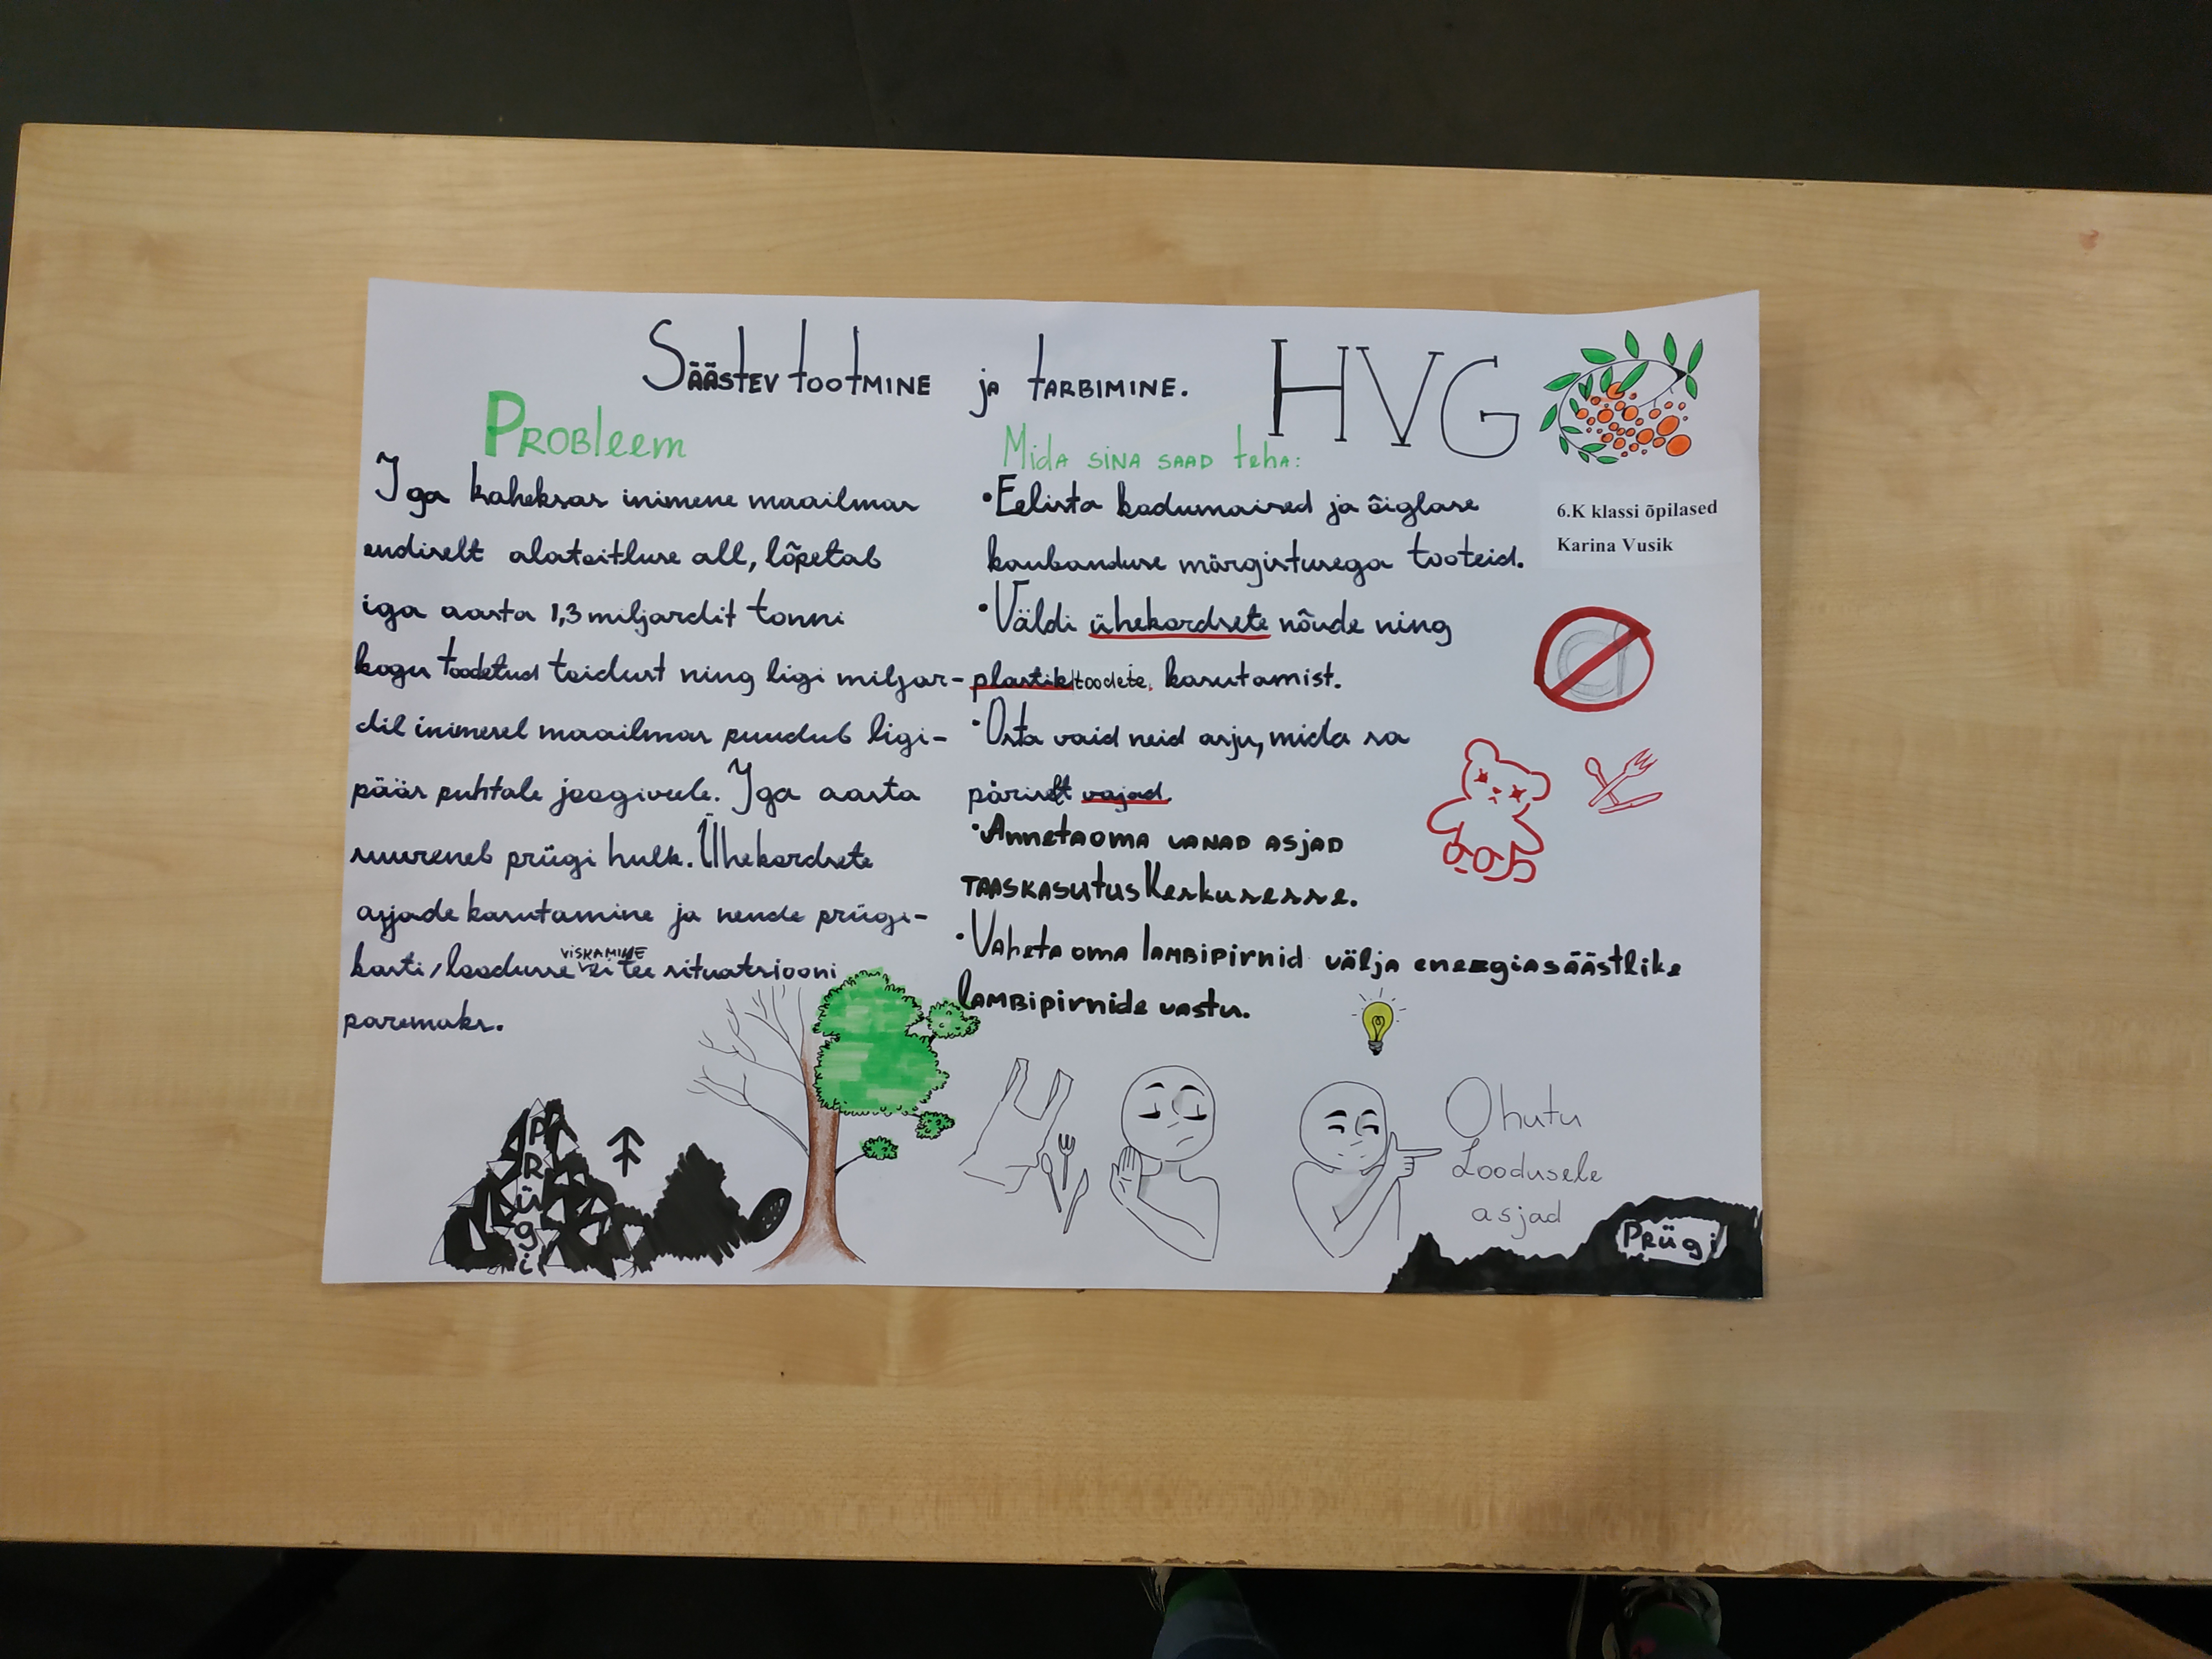 Säästev tootmine ja tarbimine.
HVG
Probleem
Iga kaheksas inimene maailmas
endiselt alatoitluse all, lõpetab
iga aasta 1,3 miljardit tonni
kogu toodetud toidust ning ligi miljar-
dil inimesel maailmas puudub ligi-
pääs puhtale joogiveele. Iga aasta
suureneb prügi hulk. Ühekordsete
asjade kasutamine ja nende prügi-
kasti/loodusse viskamine ei tee situatsiooni
paremaks.
Mida sina saad teha:
•Eelista kodumaised ja õiglase
kaubanduse märgistusega tooteid.
•Väldi ühekordsete nõude ning
plastik toodete kasutamist.
•Osta vaid neid asju, mida sa
päriselt vajad.
•Anneta oma vanad asjad
taaskasutuskeskusesse.
•Vaheta oma lambipirnid välja energiasäästlike
lambipirnide vastu.
6.K klassi õpilased
Karina Vusik
Prügi
Ohutu
Loodusele
asjad
Prügi